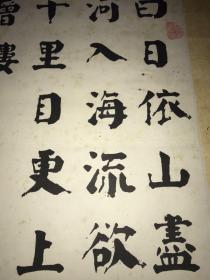 白日依山盡
河入海流欲
千里目更上
層樓